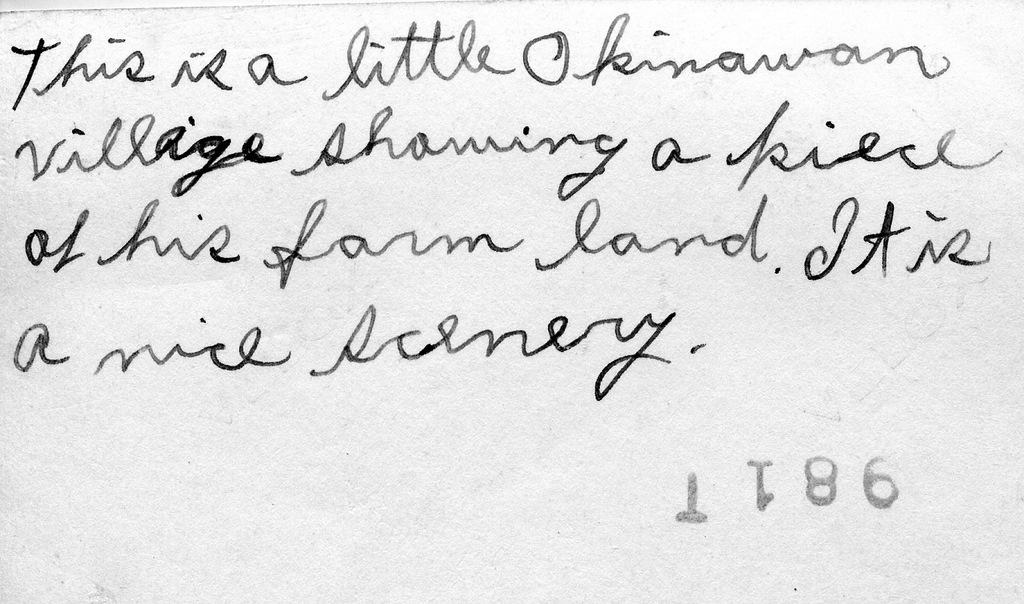 This is a little Okinawan
village showing a piece
of his farm land. It is
a nice scenery.